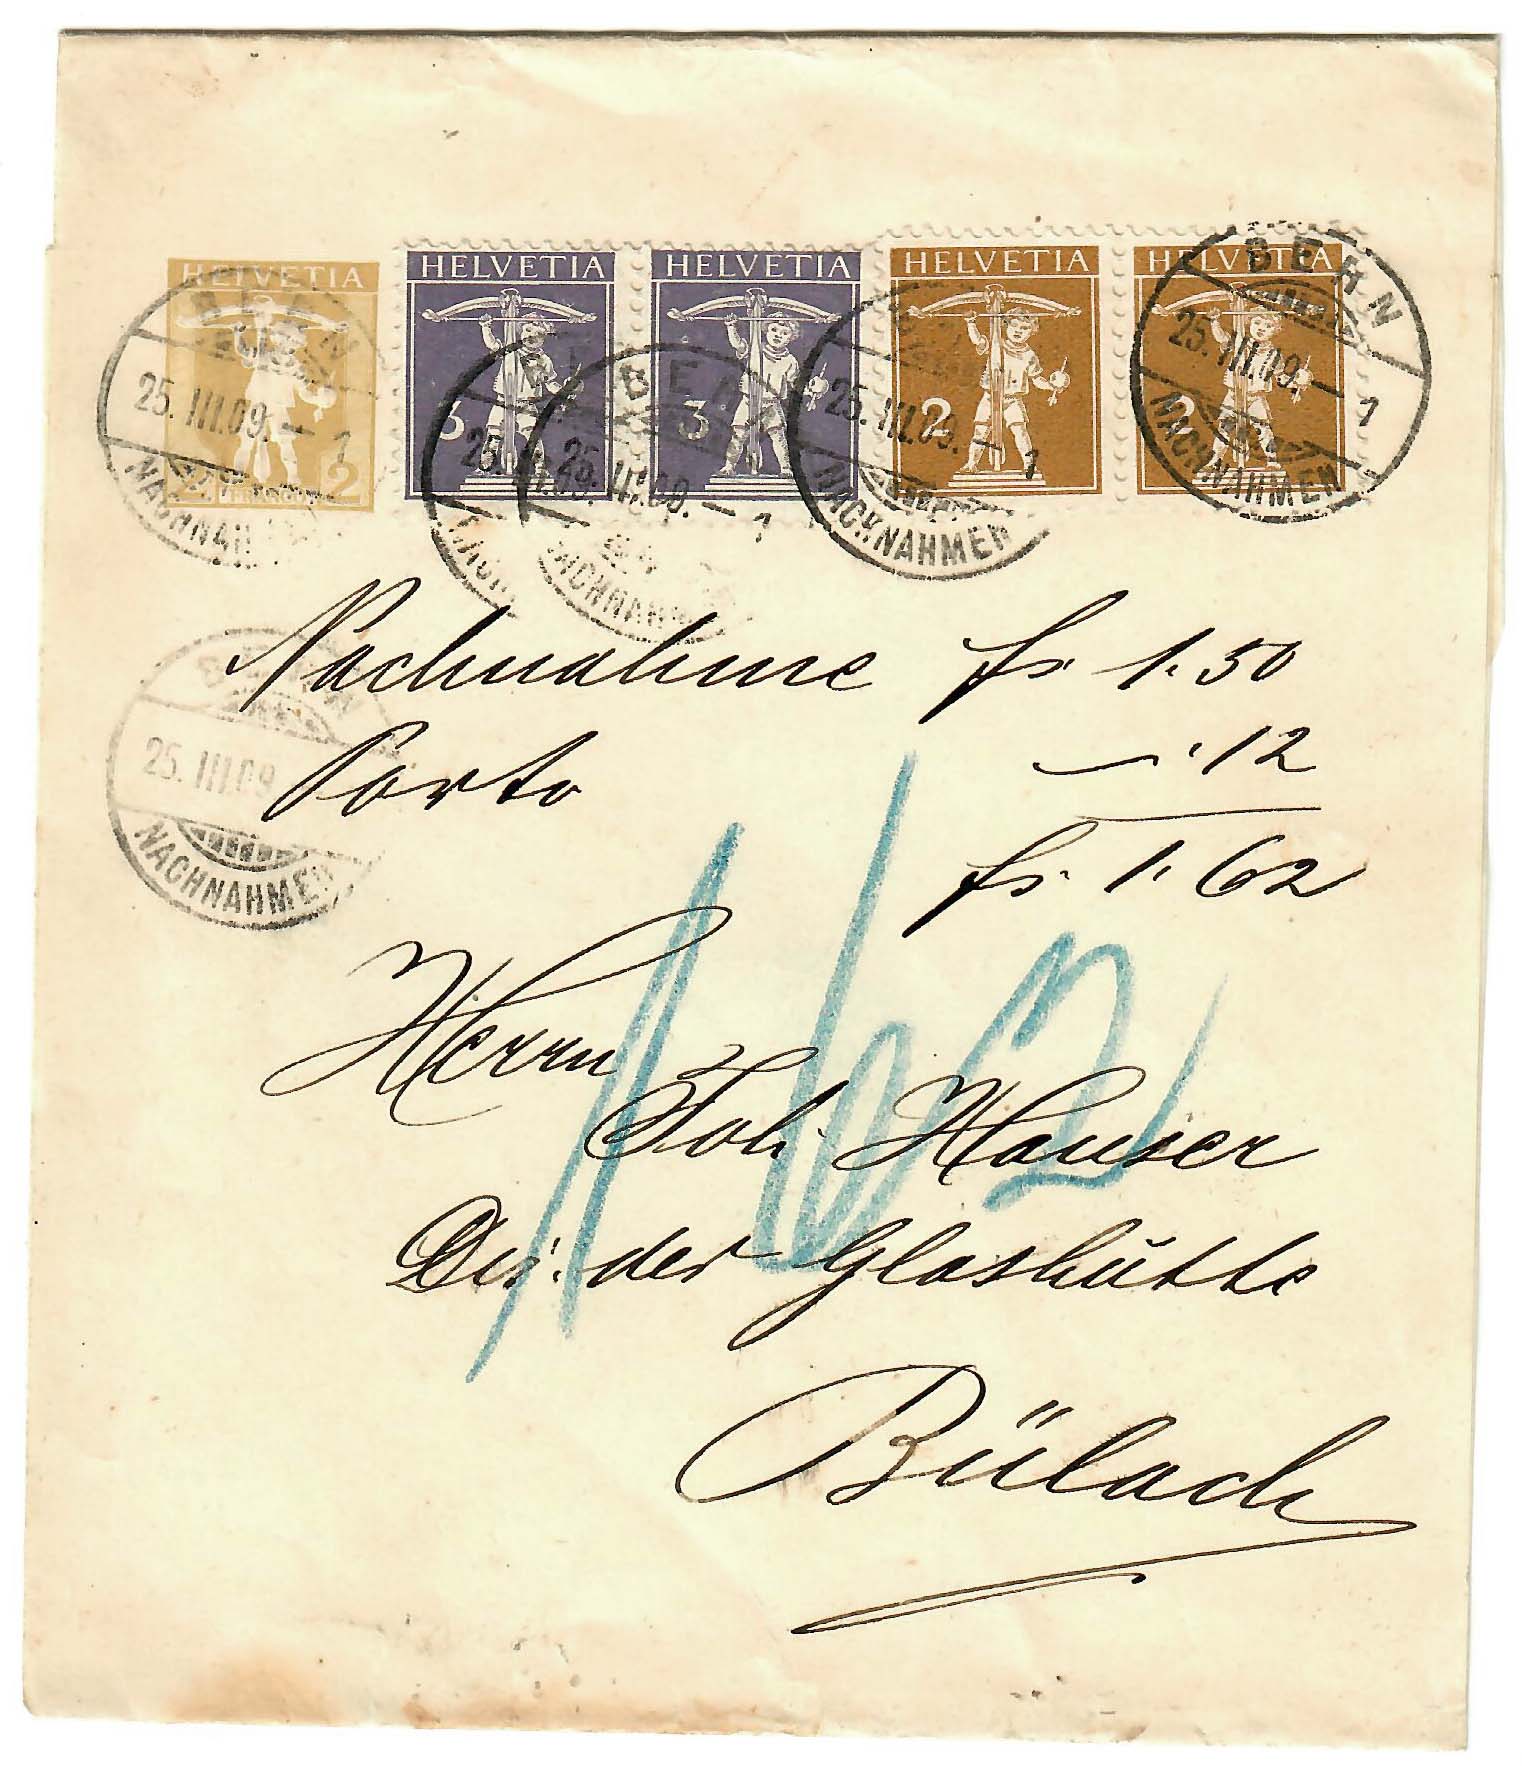 HELVETIA HELVETIA HELVETIA HELVETIA HELVETIA
2 3 3 2 2
BERN
25.III.09.–1
NACHNAHMEN
BERN
25.III.09.
NACHNAHMEN
BERN
25.III.09.–1
NACHNAHMEN
BERN
25.III.09.–1
NACHNAHMEN
BERN
25.III.09.–1
NACHNAHMEN
Nachnahme fr. 1.50
BERN
25.III.09
NACHNAHMEN
Porto —.12
fr. 1.62
162
Herrn
Joh. Hauser
Dir. der Glashütte
Bülach